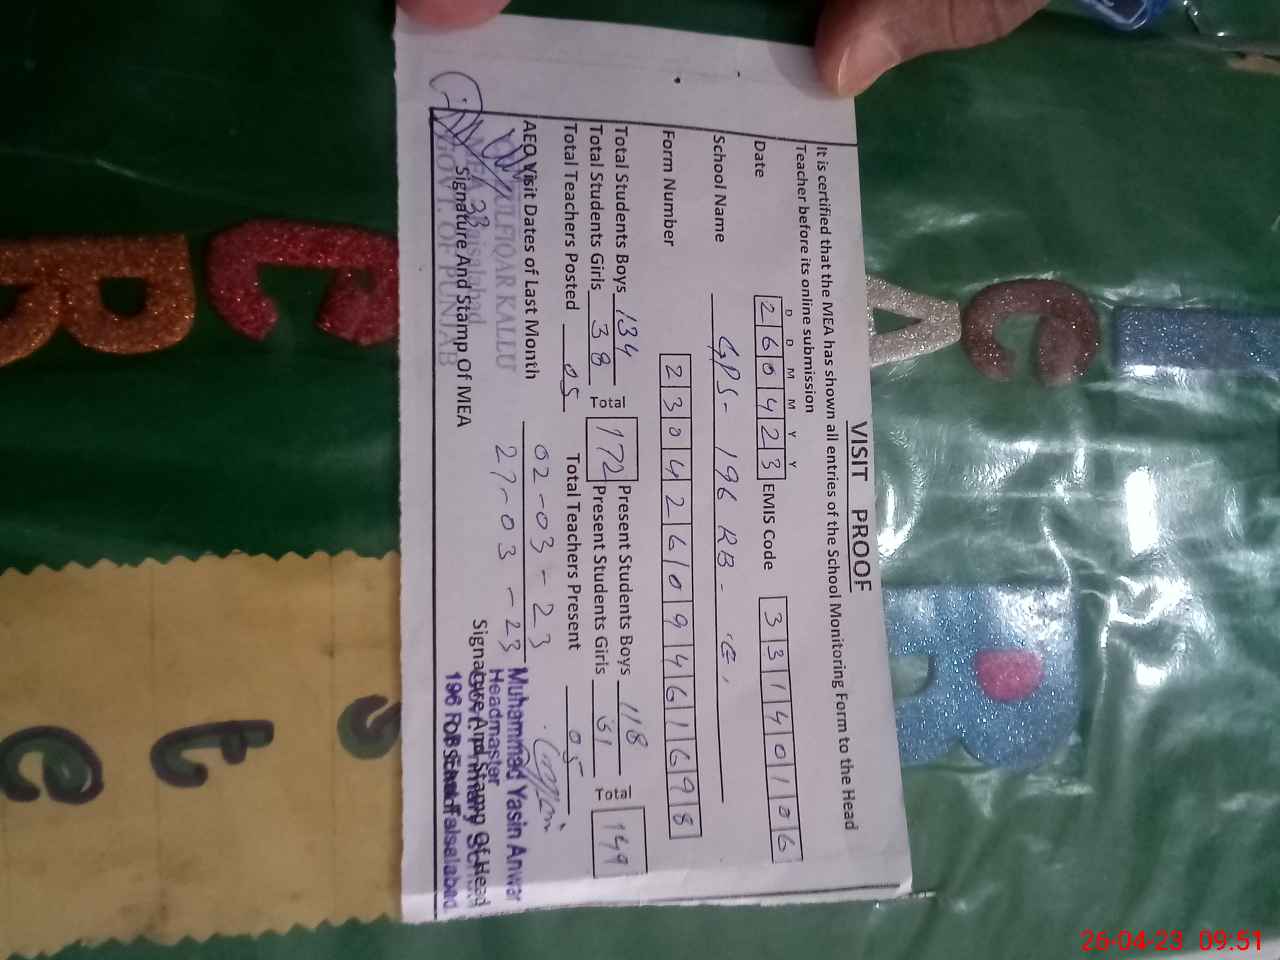 VISIT PROOF
It is certified that the MEA has shown all entries of the School Monitoring Form to the Head
Teacher before its online submission
D D M M Y Y
Date 260423 EMIS Code 33140106
School Name GPS- 196 RB-
Form Number 230426109461698
Total Students Boys 134 Present Students Boys 118
Total Students Girls 38 Total 172 Present Students Girls 31 Total 149
Total Teachers Posted 05 Total Teachers Present 05
AEO Visit Dates of Last Month 02-03-23
27-03-23
ZULFIQAR KALLU
MEA 23 Faisalabad
GOVT. OF PUNJAB
Signature And Stamp Of MEA
Muhammad Yasin Anwar
Headmaster
Signature And Stamp Of Head
196 RB Faisalabad
C
B
A
C
I
B
s
t
e
26-04-23 09:51